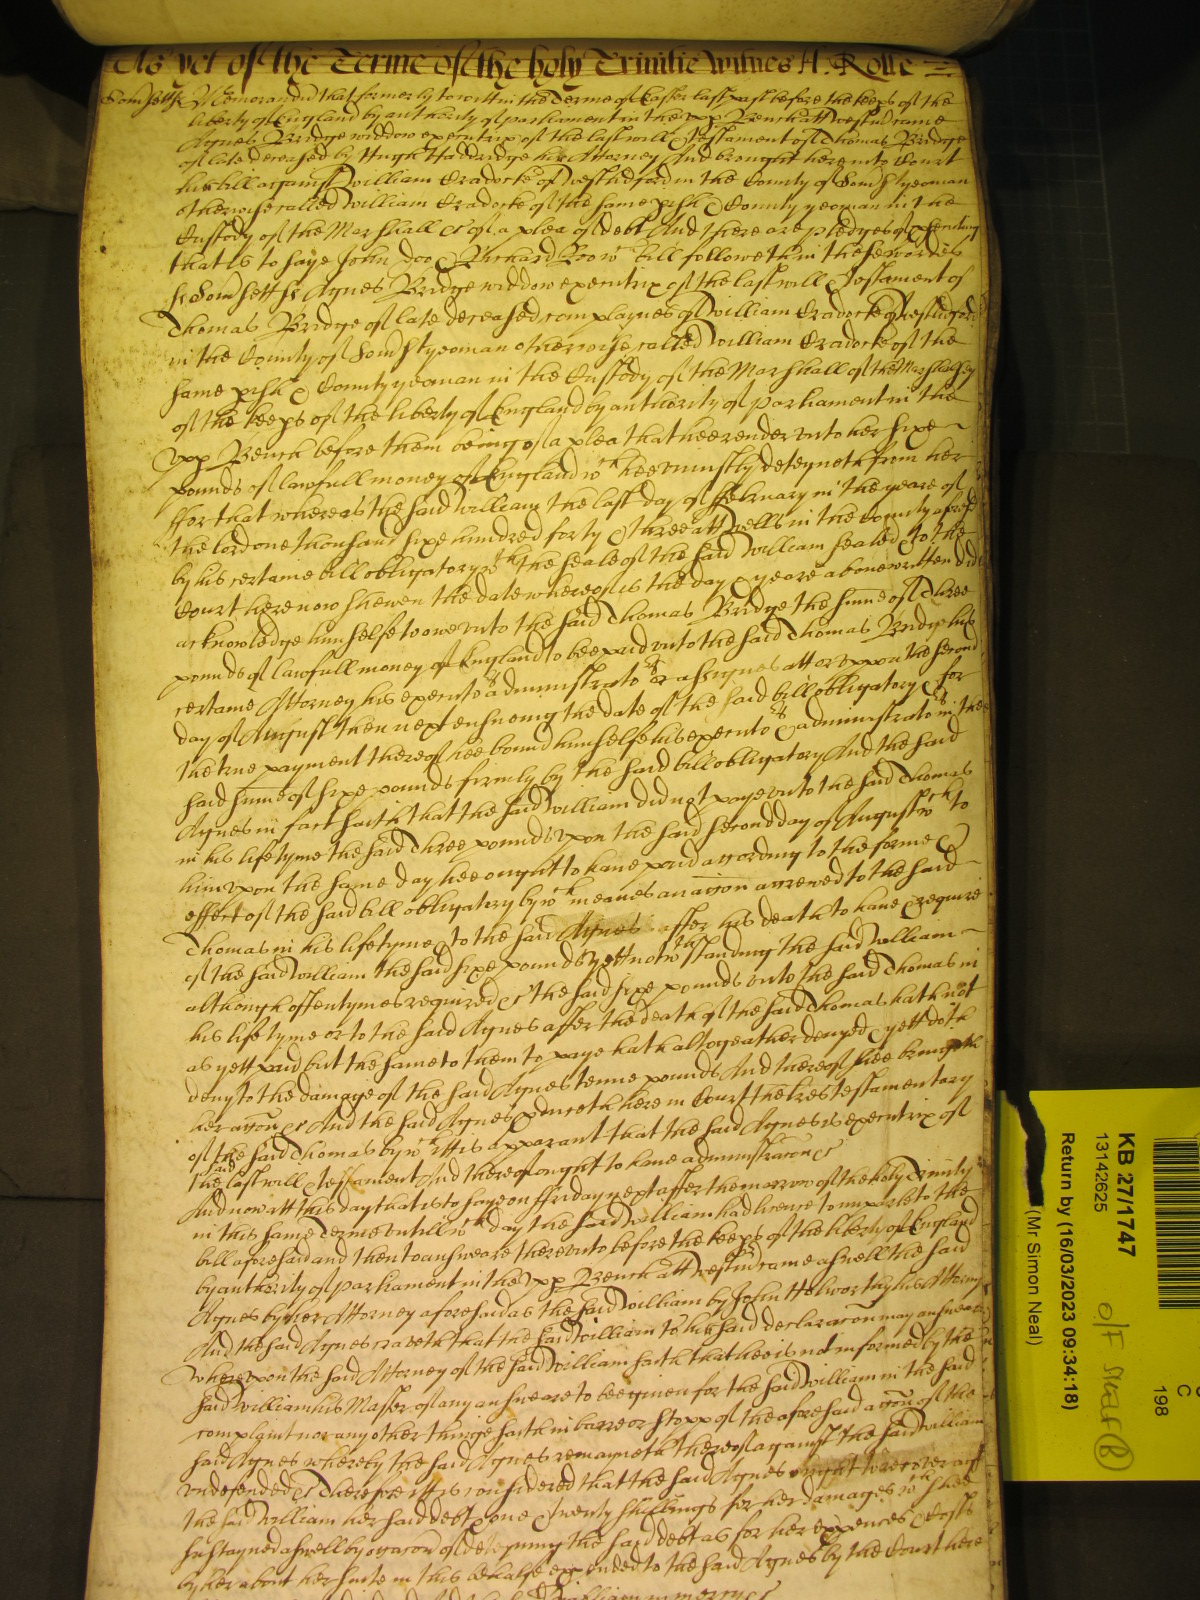 As yet of the Terme of the holy Trinitie Witnes H. Rolle
Somsett ss Memorand that formerly to witt in the Terme of Easter last past before the keeps of the
liberty of England by authority of parliament in the vpp Bench att Westm came
Agnes Bridge widdow executrix of the last will & testament of Thomas Bridge
of late deceased by Hugh Hattridge her Attorney And brought here into Court
her bill against William Cradocke of in the County of Soms yeoman
otherwise called William Cradocke of the same pish & County yeoman in the
Custody of the Marshall &c of a plea of debt And there are pledges of
that is to saye John Doo & Richard Roo wch bill followeth in these wordes
ss Somsett ss Agnes Bridge widdow executrix of the last will & Testament of
Thomas Bridge of late deceased complaynes of William Cradocke of
in the County of Soms yeoman otherwise called William Cradocke of the
same pish & County yeoman in the Custody of the Marshall of the Marshalsey
of the keeps of the liberty of England by authority of parliament in the
vpp Bench before them being of a plea that hee render vnto her sixe
pounds of lawfull money of England wch hee vniustly deteyneth from her
ffor that whereas the said William the last day of ffebruary in the yeare of
the lord one thousand sixe hundred forty & three att Wells in the County afores
by his certaine bill obligatory wth the seale of the said William sealed & to the
Court here now shewen the date whereof is the day & yeare abovewritten did
acknowledge himselfe to owe vnto the said Thomas Bridge the sume of Three
pounds of lawfull money of England to bee paid vnto the said Thomas Bridge his
certaine Attorney his executors administrators or assignes att or vppon the second
day of August then next ensueing the date of the said bill obligatory & for
the true payment thereof hee bound himselfe his executors & administrators in the
said sume of sixe pounds firmly by the said bill obligatory And the said
Agnes in fact saith that the said William did not paye vnto the said Thomas
in his life tyme the said Three pounds vpon the said second day of August wch to
him vpon the same day hee ought to have paid according to the forme &
effect of the said bill obligatory by wch meanes an accon accrewed to the said
Thomas in his life tyme & to the said Agnes after his death to have & require
of the said William the said sixe pounds yett notwthstanding the said William
although oftentymes required &c the said sixe pounds vnto the said Thomas in
his life tyme or to the said Agnes after the death of the said Thomas hath not
as yett paid but the same to them to paye hath altogeather denyed & yett doth
deny to the damage of the said Agnes tenne pounds And thereof shee bringeth
her accon &c And the said Agnes pduceth here in Court the lres testamentary
of the said Thomas by wch itt is apparant that the said Agnes is executrix of
the said last will & testament And thereof ought to have administracon &c
And now att this day that is to saye on ffriday next after the morrow of the holy Trinity
in this same Terme vntill wch day the said William had licence to imparle to the
bill aforesaid and then to answeare therevnto before the keeps of the liberty of England
by authority of parliament in the vpp Bench att Westm came aswell the said
Agnes by her Attorney aforesaid as the said William by John his Attorny
And the said Agnes craveth that the said William to his said declaracon may answeare
wherevpon the said Attorney of the said William saith that hee is not informed by the
said William his Master of any answeare to bee given for the said William in the said
complaint nor any other thinge saith in barre or stopp of the aforesaid accon of the
said Agnes whereby the said Agnes remayneth thereof against the said William
vndefended &c Therefore itt is considered that the said Agnes ought to recover agt
the said William her said debt & one & twenty shillings for her damages wch shee
sustayned aswell by occasion of deteyning the said debt as for her expences & costs
by her about her suite in this behalfe expended to the said Agnes by the Court here
William in mercy &c
KB 27/1747
13142625
Return by (16/03/2023 09:34:18)
(Mr Simon Neal)
C
198